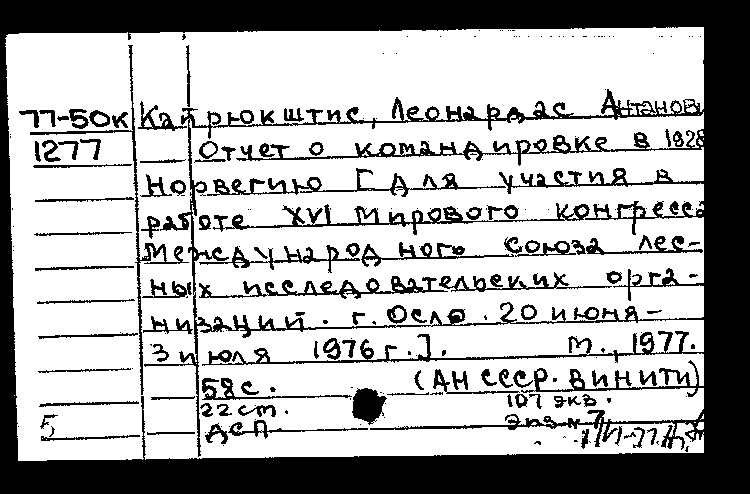 77-50к Кайрюкштис, Леонардас Антанови
1277 Отчет о командировке в 1928
Норвегию [Для участия в
работе XVI Мирового конгресса
Международного союза лес-
ных исследовательских орга-
низаций. г. Осло. 20 июня-
3 июля 1976 г.]. М., 1977.
58 с. (АН СССР. ВИНИТИ)
22 см. 107 экз.
5 ДСП Экз № 7